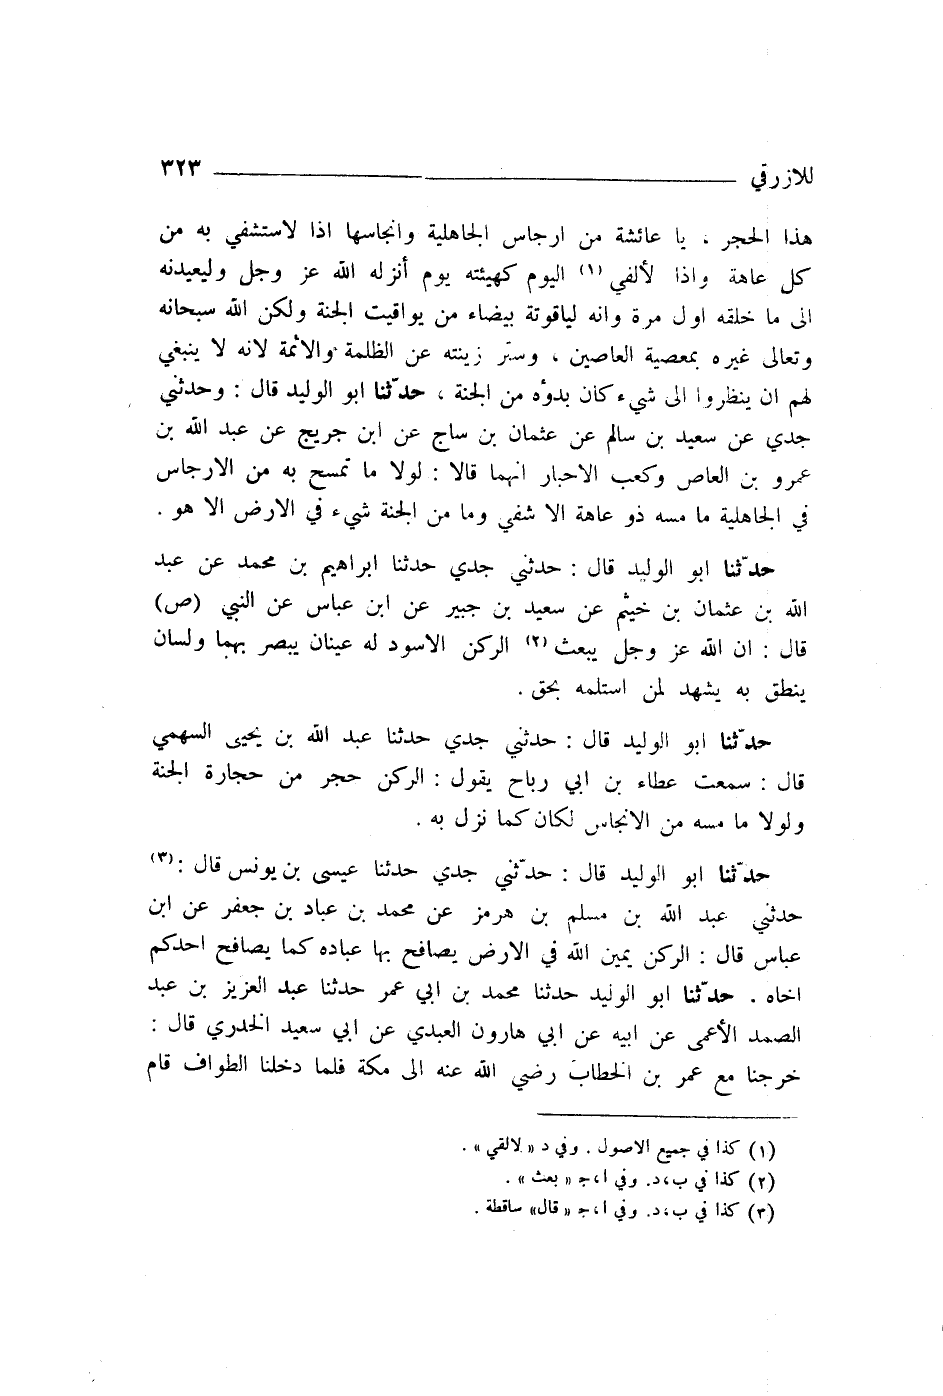 للازرقي ٣٢٣
هذا الحجر ، يا عائشة من ارجاس الجاهلية وانجاسها اذا لاستشفي به من
كل عاهة واذا لألفي (١) اليوم كهيئته يوم أنزله الله عز وجل وليعيدنه
الى ما خلقه اول مرة وانه لياقوتة بيضاء من يواقيت الجنة ولكن الله سبحانه
وتعالى غيره بمعصية العاصين ، وستر زينته عن الظلمة والاثمة لانه لا ينبغي
لهم ان ينظروا الى شيء كان بدوُه من الجنة ، حدّثنا ابو الوليد قال : وحدثني
جدي عن سعيد بن سالم عن عثمان بن ساج عن ابن جريج عن عبد الله بن
عمرو بن العاص وكعب الاحبار انهما قالا : لولا ما تمسح به من الارجاس
في الجاهلية ما مسه ذو عاهة الا شفي وما من الجنة شيء في الارض الا هو .
حدّثنا ابو الوليد قال : حدثني جدي حدثنا ابراهيم بن محمد عن عبد
الله بن عثمان بن خيثم عن سعيد بن جبير عن ابن عباس عن النبي (ص)
قال : ان الله عز وجل يبعث (٢) الركن الاسود له عينان يبصر بهما ولسان
ينطق به يشهد لمن استلمه بحق .
حدّثنا ابو الوليد قال : حدثني جدي حدثنا عبد الله بن يحيى السهمي
قال : سمعت عطاء بن ابي رباح يقول : الركن حجر من حجارة الجنة
ولولا ما مسه من الانجاس لكان كما نزل به .
حدّثنا ابو الوليد قال : حدّثني جدي حدثنا عيسى بن يونس قال :(٣)
حدثني عبد الله بن مسلم بن هرمز عن محمد بن عباد بن جعفر عن ابن
عباس قال : الركن يمين الله في الارض يصافح بها عباده كما يصافح احدكم
اخاه . حدّثنا ابو الوليد حدثنا محمد بن ابي عمر حدثنا عبد العزيز بن عبد
الصمد الأعمى عن ابيه عن ابي هارون العبدي عن ابي سعيد الخدري قال :
خرجنا مع عمر بن الخطاب رضي الله عنه الى مكة فلما دخلنا الطواف قام
(١) كذا في جميع الاصول . وفي د « لالقي » .
(٢) كذا في ب، د. وفي ا، ج « بعث » .
(٣) كذا في ب، د. وفي ا، ج « قال» ساقطة .